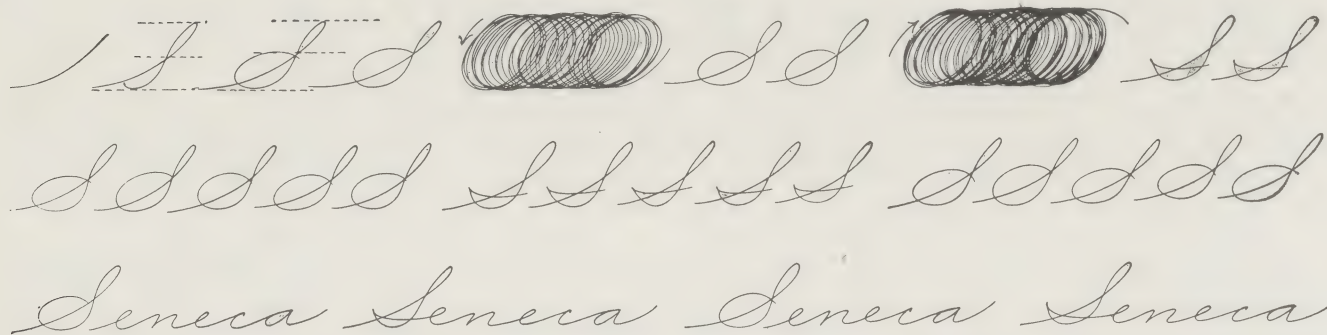 S S S S S S S
S S S S S S S S S S S S S S S
Seneca Seneca Seneca Seneca